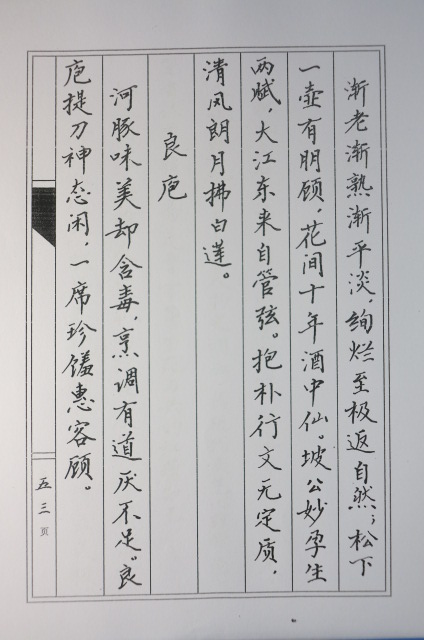 渐老渐熟渐平淡，绚烂至极返自然；松下
一壶有朋顾，花间十年酒中仙。坡公妙孕生
两赋，大江东来自管弦。抱朴行文无定质，
清风朗月拂白莲。
良庖
河豚味美却含毒，烹调有道厌不足。良
庖提刀神态闲，一席珍馐惠客顾。
五三页